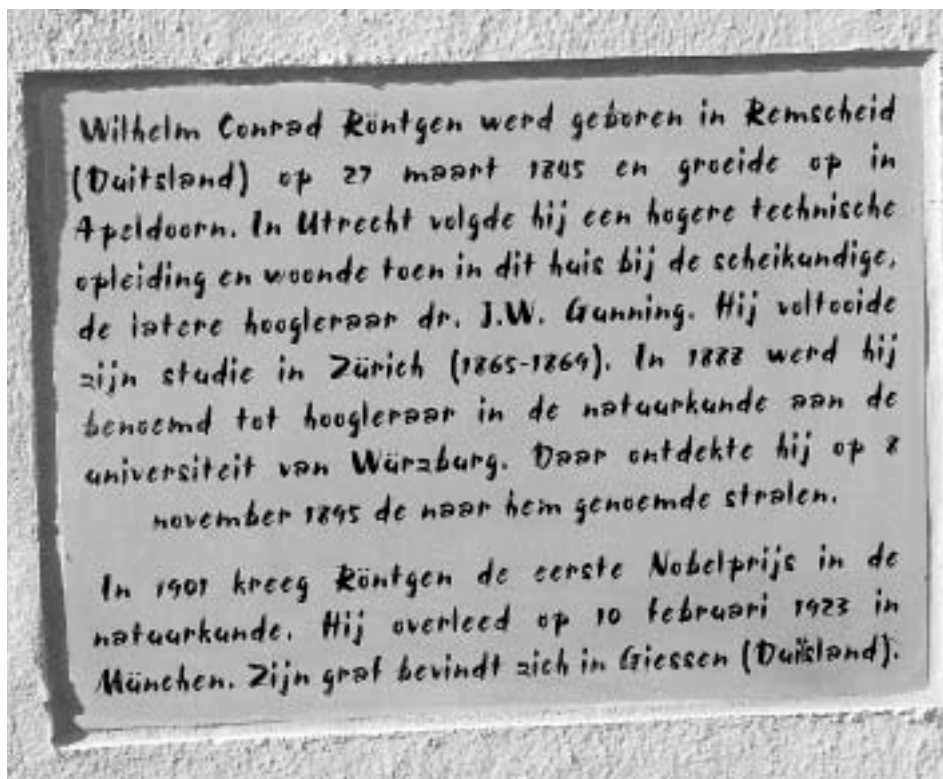 Wilhelm Conrad Röntgen werd geboren in Remscheid
(Duitsland) op 27 maart 1845 en groeide op in
Apeldoorn. In Utrecht volgde hij een hogere technische
opleiding en woonde toen in dit huis bij de scheikundige,
de latere hoogleraar dr. J.W. Gunning. Hij voltooide
zijn studie in Zürich (1865-1869). In 1888 werd hij
benoemd tot hoogleraar in de natuurkunde aan de
universiteit van Würzburg. Daar ontdekte hij op 8
november 1895 de naar hem genoemde stralen.
In 1901 kreeg Röntgen de eerste Nobelprijs in de
natuurkunde. Hij overleed op 10 februari 1923 in
München. Zijn graf bevindt zich in Giessen (Duitsland).